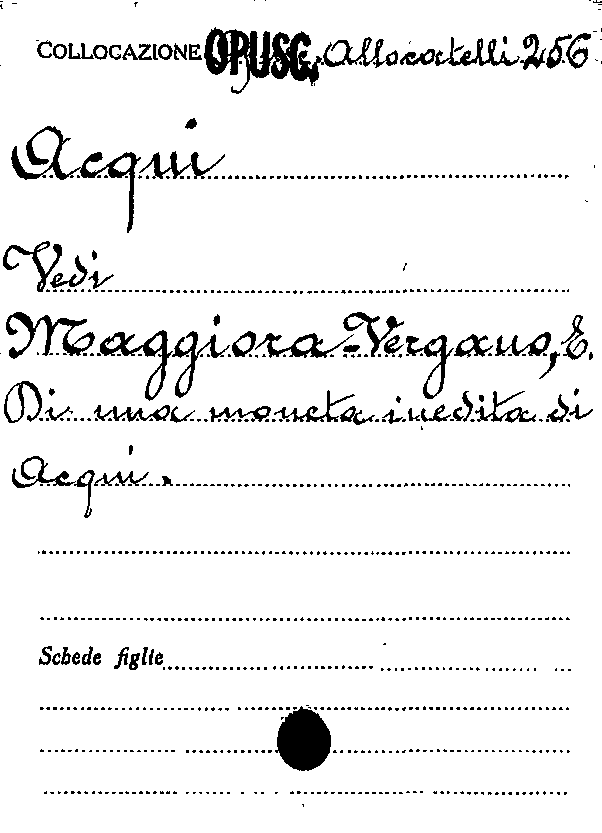 COLLOCAZIONE OPUSC. Allocatelli 256
Acqui
Vedi
Maggiora-Vergano, E.
Di una moneta inedita di
Acqui.
Schede figlie